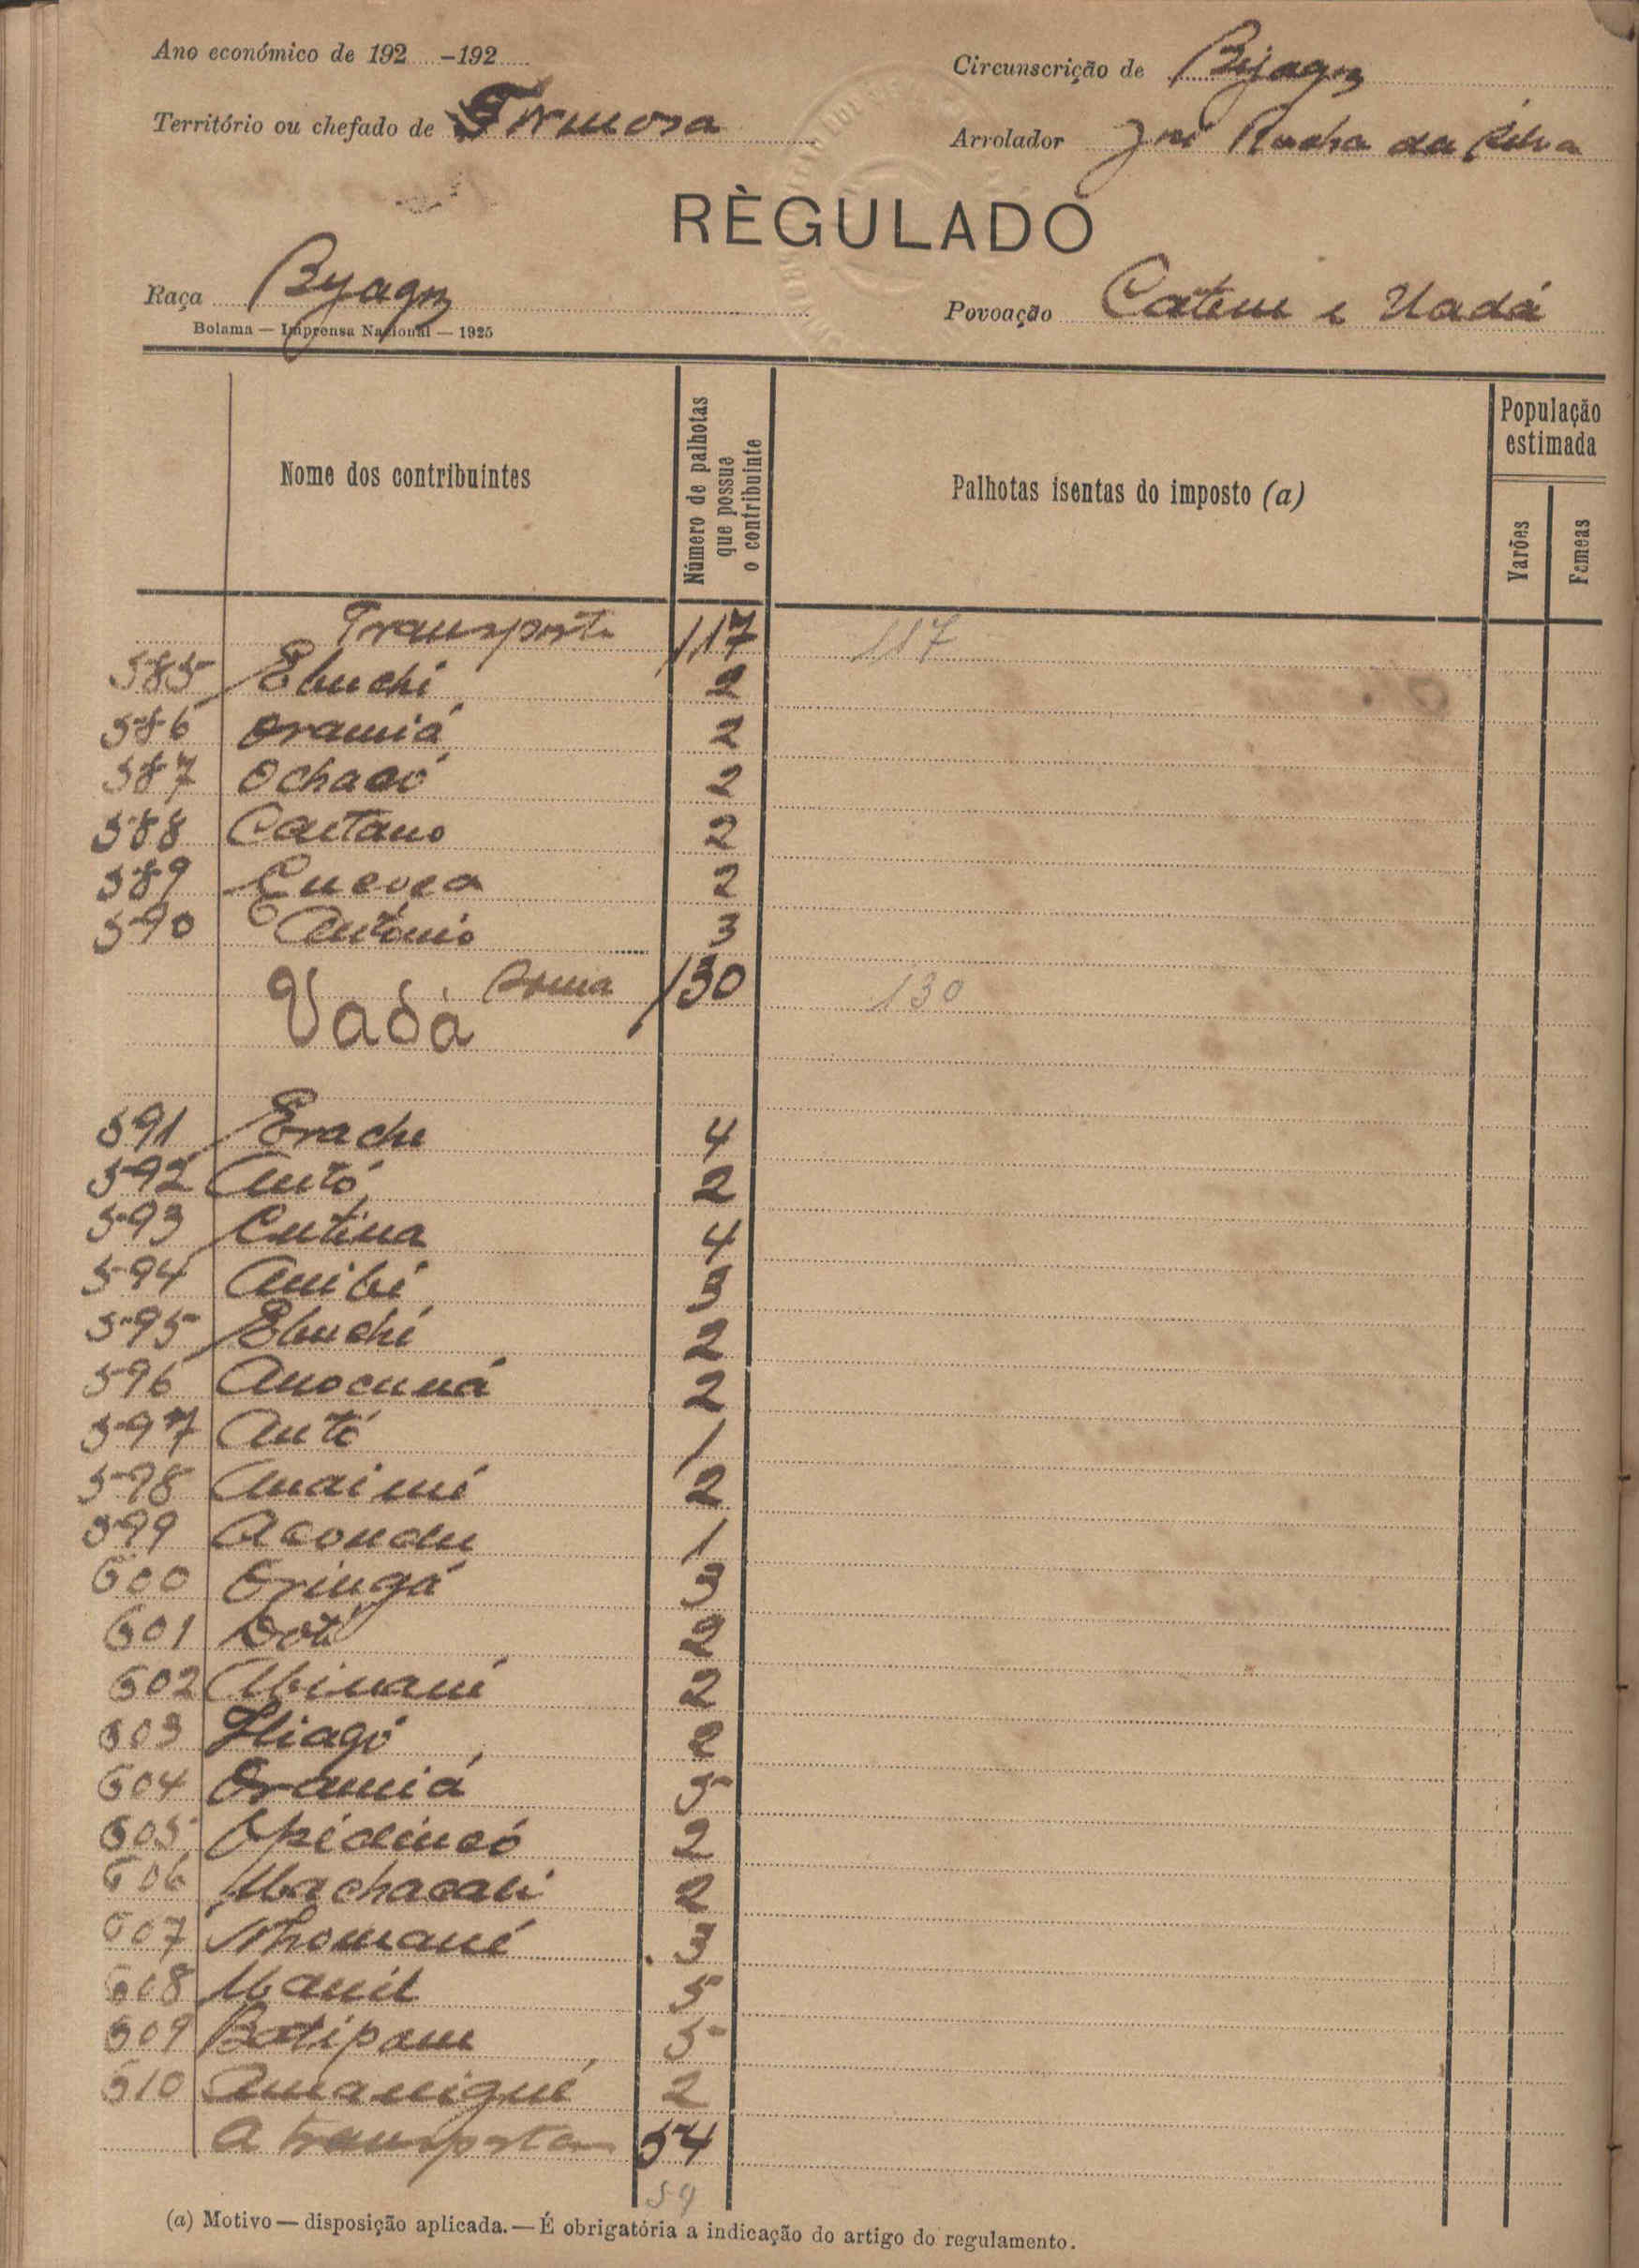 Ano económico de 192 -192
Circunscrição de Bijagoz
Território ou chefado de Formosa
Arrolador José Rocha da Silva
RÈGULADO
Raça Byagoz
Povoação Catem e Uadá
Bolama — Imprensa Nacional — 1925
Nome dos contribuintes
Número de palhotas que possue o contribuinte
Palhotas isentas do imposto (a)
População estimada
Varões
Femeas
Transporte 117 117
585 Ebuchi 2
586 Oramiá 2
587 Ochacó 2
588 Caetano 2
589 2
590 António 3
Soma 130 130
Vadá
591 Erache 4
592 Antó 2
593 Cutina 4
594 Anibi 3
595 Ebuchi 2
596 Anocuná 2
597 Antó 1
598 2
599 Acondu 1
600 Oringá 3
601 Doti 2
602 2
603 2
604 Oramiá 5
605 2
606 Machacali 2
607 Nhomané 3
608 5
609 Batipam 5
610 Amanigué 2
A transportar 54
59
(a) Motivo — disposição aplicada. — É obrigatória a indicação do artigo do regulamento.